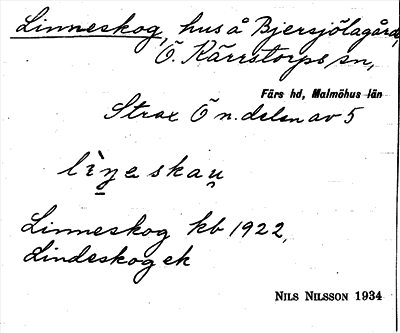 Linneskog, hus å Bjersjölagård,
Ö. Kärrstorps sn,
Färs hd, Malmöhus län
Strax Ö n. delen av 5
Linneskog kb 1922,
Lindeskog ek
NILS NILSSON 1934